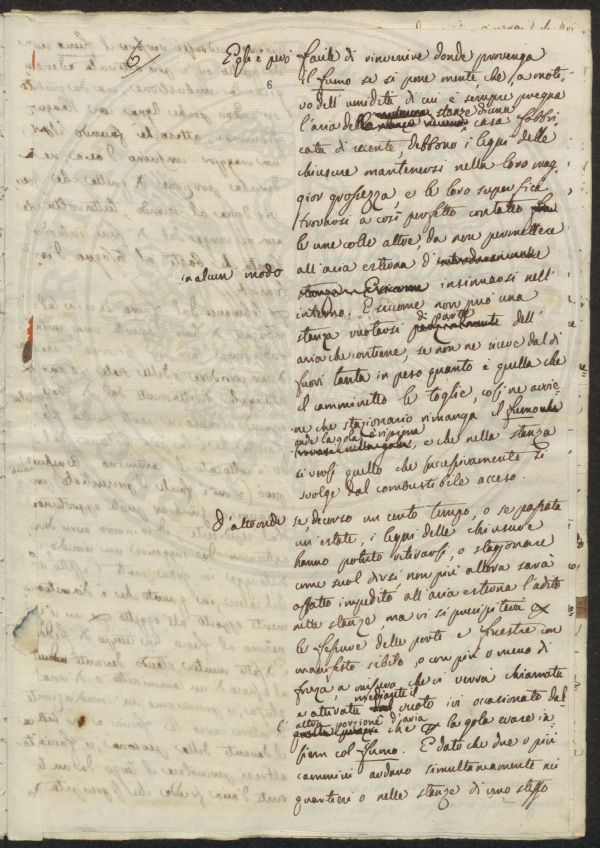 6
6
Egli è però facile di rinvenire donde provenga
il fumo se si pone mente, che, a moti-
vo dell'umidità di cui è sempre pregna
l'aria delle stanze di una casa fabbri-
cata di recente, debbono i legni delle
chiusure mantenersi nella loro mag-
gior grossezza, e le loro superficie
trovarsi a così perfetto contatto
le une colle altre, da non permettere
all'aria esterna d'
in alcun modo insinuarsi nell'
interno. E siccome non può una
stanza vuotarsi di parte dell'
aria che contiene, se non ne riceve dal di
fuori tanta in peso quanto è quella che
il camminetto le toglie, così ne avvie-
ne che stazionario rimanga il fumo
onde la gola è ripiena, e che nella stanza
si versi quello che successivamente si
svolge dal combustibile acceso.
D'altronde se, decorso un certo tempo, o se passata
un'estate, i legni delle chiusure
hanno potuto ritirarsi, o stagionare
come suol dirsi, non più allora sarà
affatto impedito all'aria esterna l'adito
nelle stanze ma vi si precipiterà
le fessure delle porte e finestre con
manifesto sibilo, o con più o meno di
forza a misura che vi verrà chiamata
e attivata mediante il vuoto ivi occasionato dal
l'altra porzione d'aria che la gola evase in-
siem col fumo. E dato che due o più
cammini ardano simultaneamente nei
quartieri o nelle stanze di uno stesso